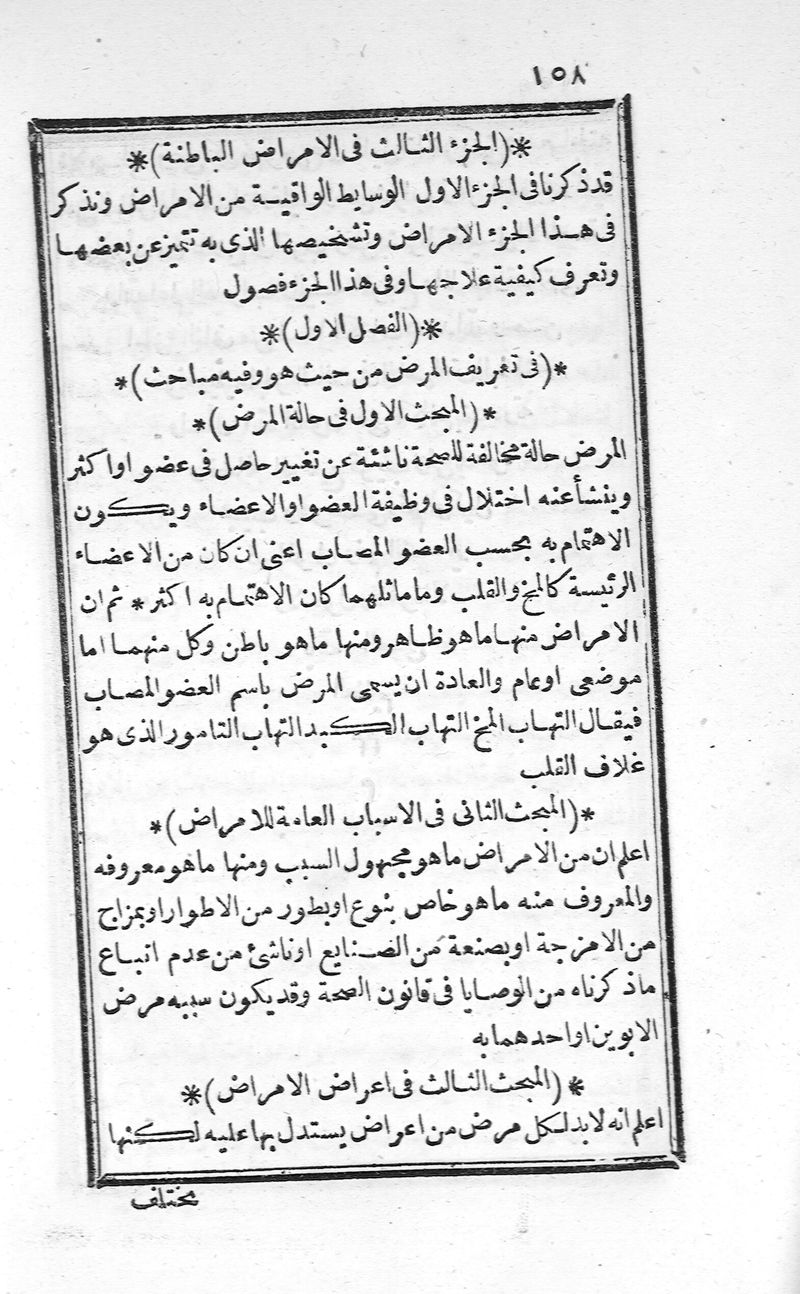 ١٥٨
*(الجزء الثالث فى الامراض الباطنة)*
قد ذكرنا فى الجزء الاول الوسايط الواقية من الامراض ونذكر
فى هذا الجزء الامراض وتشخيصها الذى به تتميز عن بعضها
وتعرف كيفية علاجها وفى هذا الجزء فصول
*(الفصل الاول)*
*(فى تعريف المرض من حيث هو وفيه مباحث)*
*(المبحث الاول فى حالة المرض)*
المرض حالة مخالفة للصحة ناشئة عن تغيير حاصل فى عضو اواكثر
وينشأعنه اختلال فى وظيفة العضو اوالاعضاء ويكون
الاهتمام به بحسب العضو المصاب اعنى ان كان من الاعضاء
الرئيسة كالمخ والقلب وماماثلهما كان الاهتمام به اكثر * ثم ان
الامراض منها ماهو ظاهر ومنها ماهو باطن وكل منهما اما
موضعى اوعام والعادة ان يسمى المرض باسم العضو المصاب
فيقال التهاب المخ التهاب الكبد التهاب التامور الذى هو
غلاف القلب
*(المبحث الثانى فى الاسباب العامة للامراض)*
اعلم ان من الامراض ماهو مجهول السبب ومنها ماهو معروفه
والمعروف منه ماهو خاص بنوع او بطور من الاطوار او بمزاج
من الامزجة او بصنعة من الصنايع او ناشئ من عدم اتباع
ماذكرناه من الوصايا فى قانون الصحة وقد يكون سببه مرض
الابوين اواحدهما به
*(المبحث الثالث فى اعراض الامراض)*
اعلم انه لابد لكل مرض من اعراض يستدل بها عليه لكنها
مختلف